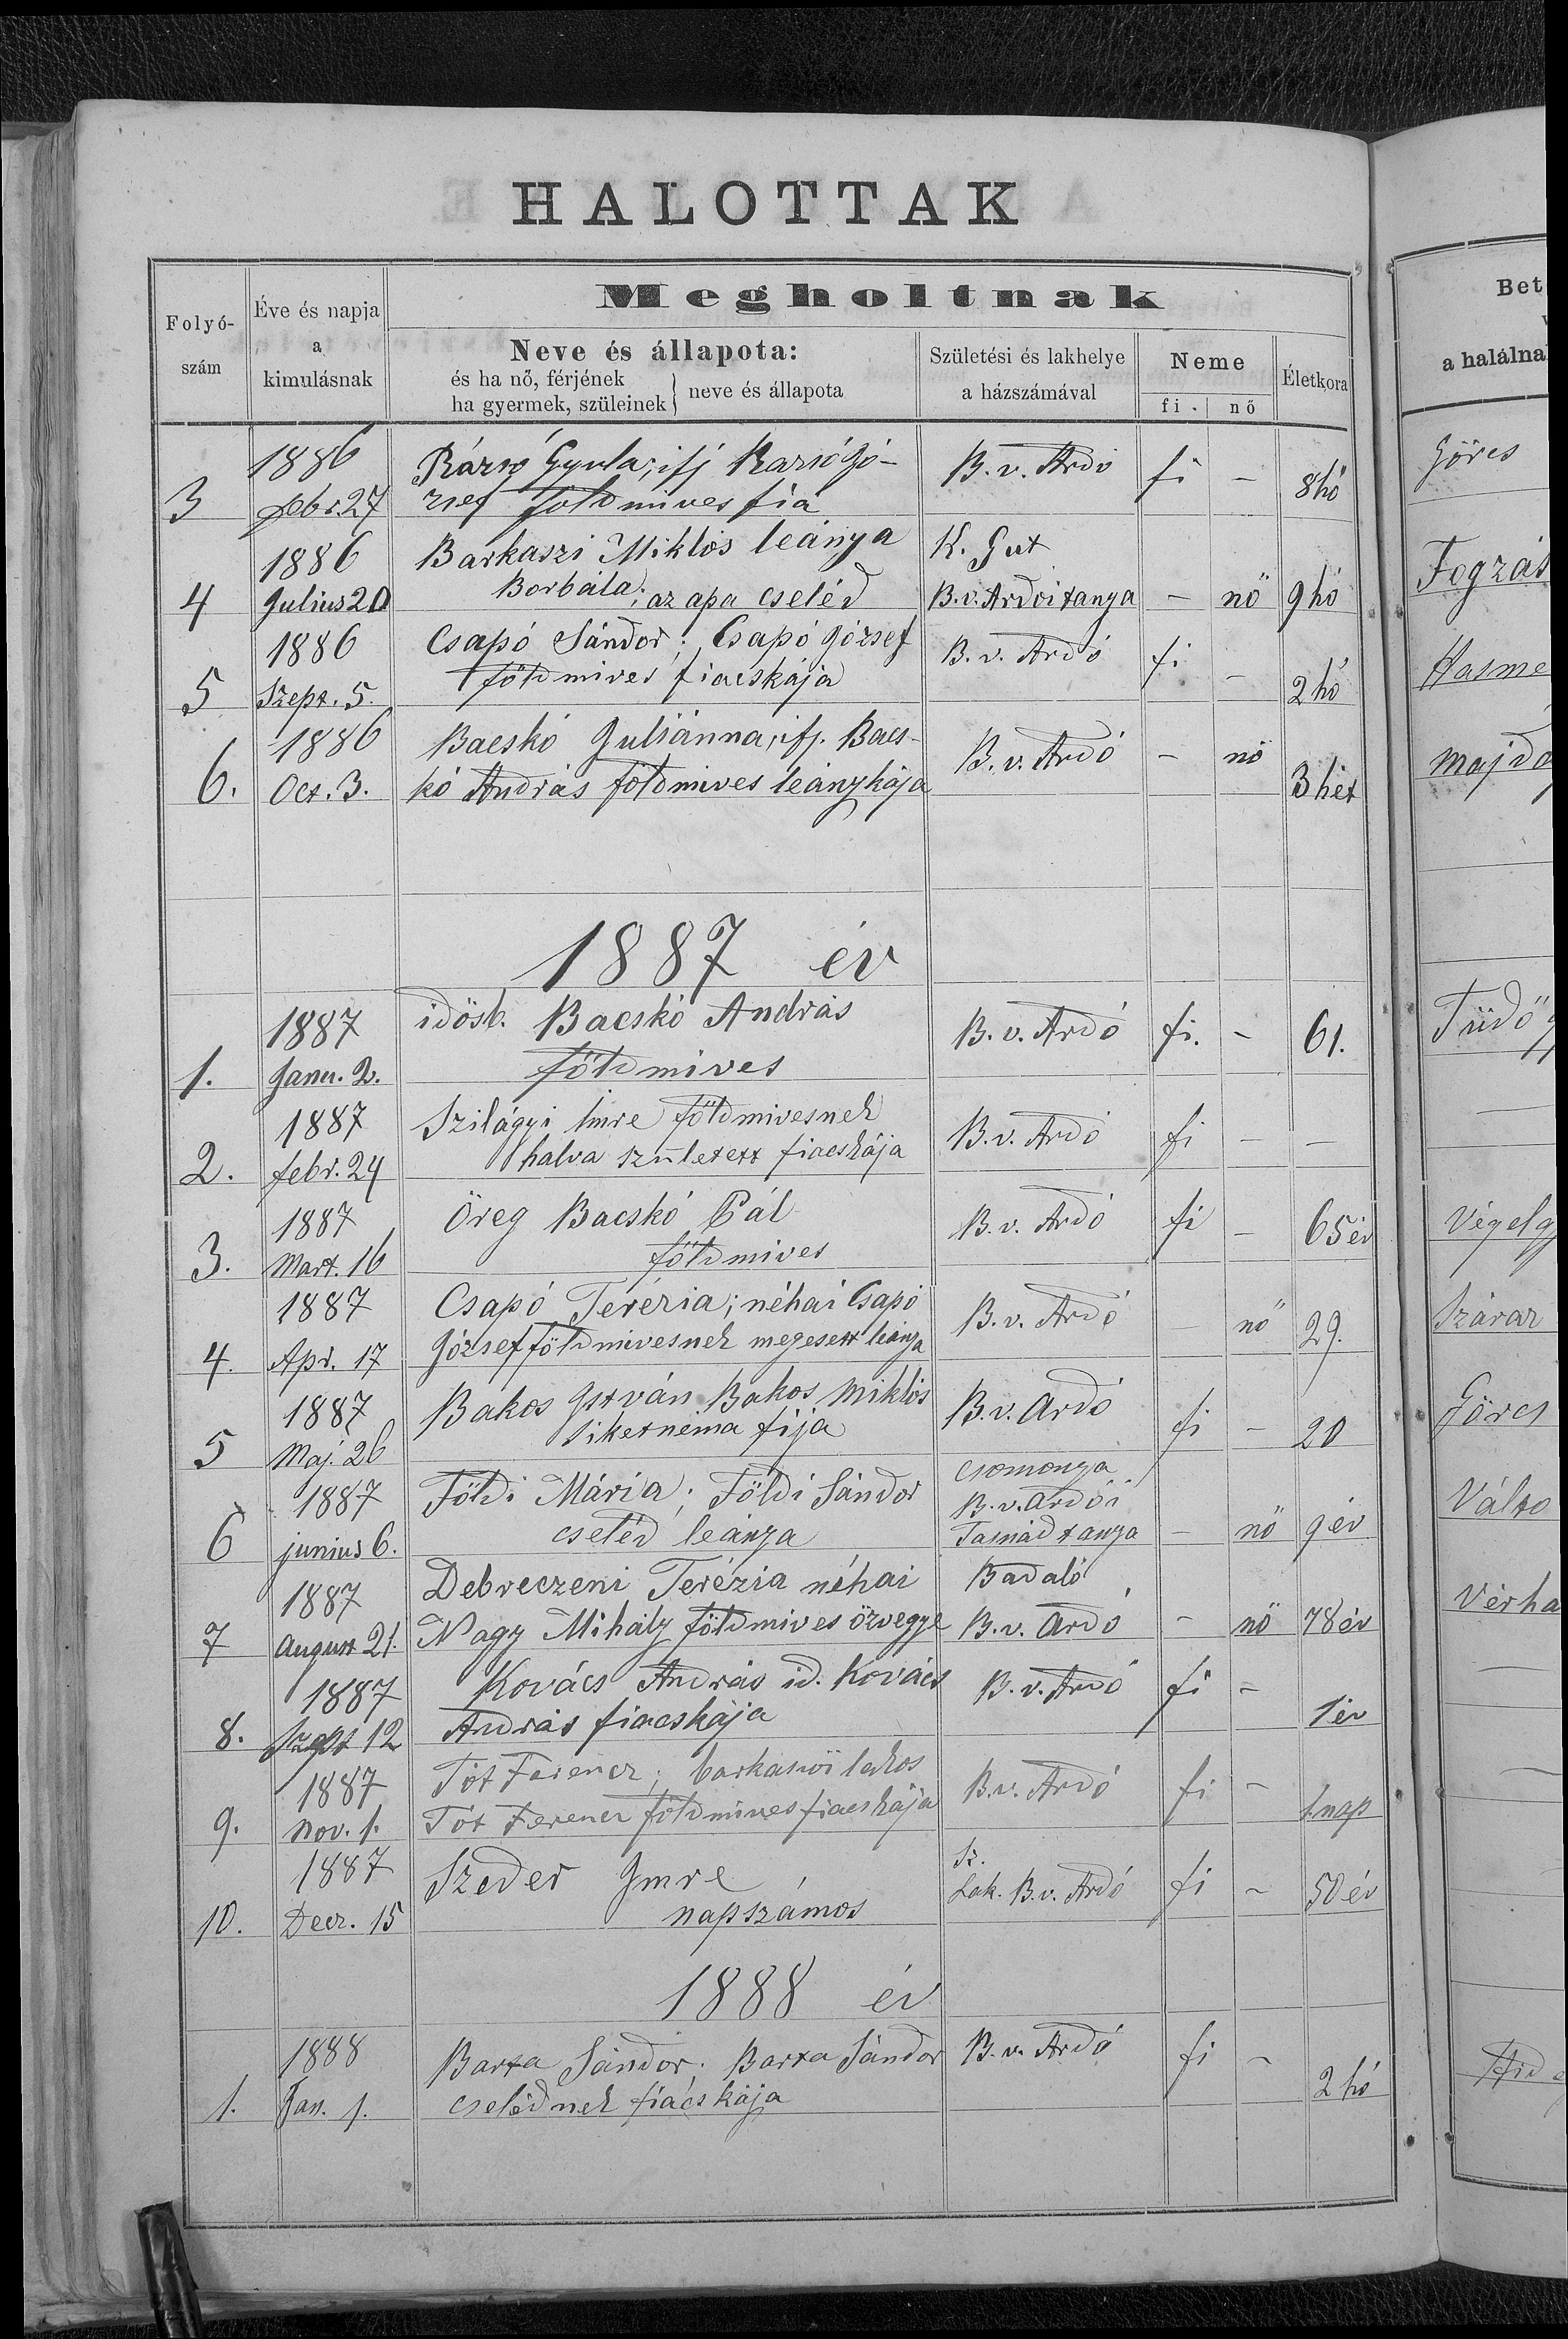 HALOTTAK
Folyó-szám
Éve és napja a kimulásnak
Megholtnak
Neve és állapota:
és ha nő, férjének
ha gyermek, szüleinek } neve és állapota
Születési és lakhelye a házszámával
Neme
fi. nő
Életkora
Bet
a halálna
1886 Rázsó Gyula; ifj Razsó Jó- B. v. Ardó fi - 8 hó Görcs
3 febr. 27 zsef földmives fia
1886 Barkaszi Miklós leánya K. Gut
4 Julius 20 Borbála; az apa cseléd B. v. Ardói tanya - nő 9 hó Fogzás
1886 Csapó Sándor; Csapó József B. v. Ardó fi - 2 hó Hasme
5 Szept. 5. földmives fiacskája
1886 Bacskó Juliánna, ifj. Bacs- B. v. Ardó - nő 3 hét majda
6. Oct. 3. kó András földmives leánykája
1887 év
1887 idősb. Bacskó András B. v. Ardó fi. - 61. Tüdő
1. Janu. 2. földmives
1887 Szilágyi Imre földmivesnek B. v. Ardó fi - -
2. febr. 24 halva született fiacskája
1887 Öreg Bacskó Pál B. v. Ardó fi - 65 év Végelgy
3. Mart. 16 földmives
1887 Csapó Terézia; néhai Csapó B. v. Ardó - nő 29. Száraz
4. Apr. 17 József földmivesnek megesett leánya
1887 Bakos István Bakos Miklós B. v. Ardó fi - 20 Görcs
5 Maj. 26 siketnéma fija
1887 Földi Mária; Földi Sándor csomonya
B. v. Ardói
6 junius 6. cseléd leánya Tasnád tanya - nő 9 évVálto
1887 Debreczeni Terézia néhai Badaló
7 August 21. Nagy Mihály földmives özvegye B. v. Ardó - nő 78 év Vérha
1887 Kovács András id. Kovács B. v. Ardó fi - 1 év
8. Szept 12 András fiacskája
1887 Tót Ferencz; barkaszói lakos B. v. Ardó fi - 1 nap
9. Nov. 1. Tót Ferencz földmives fiacskája
1887 Szeder Imre Sz.
Lak. B. v. Ardó fi - 50 év
10. Decz. 15 napszámos
1888 év
1888 Barta Sándor; Barta Sándor B. v. Ardó fi - 2 hó
1. Jan. 1. cselédnek fiacskája